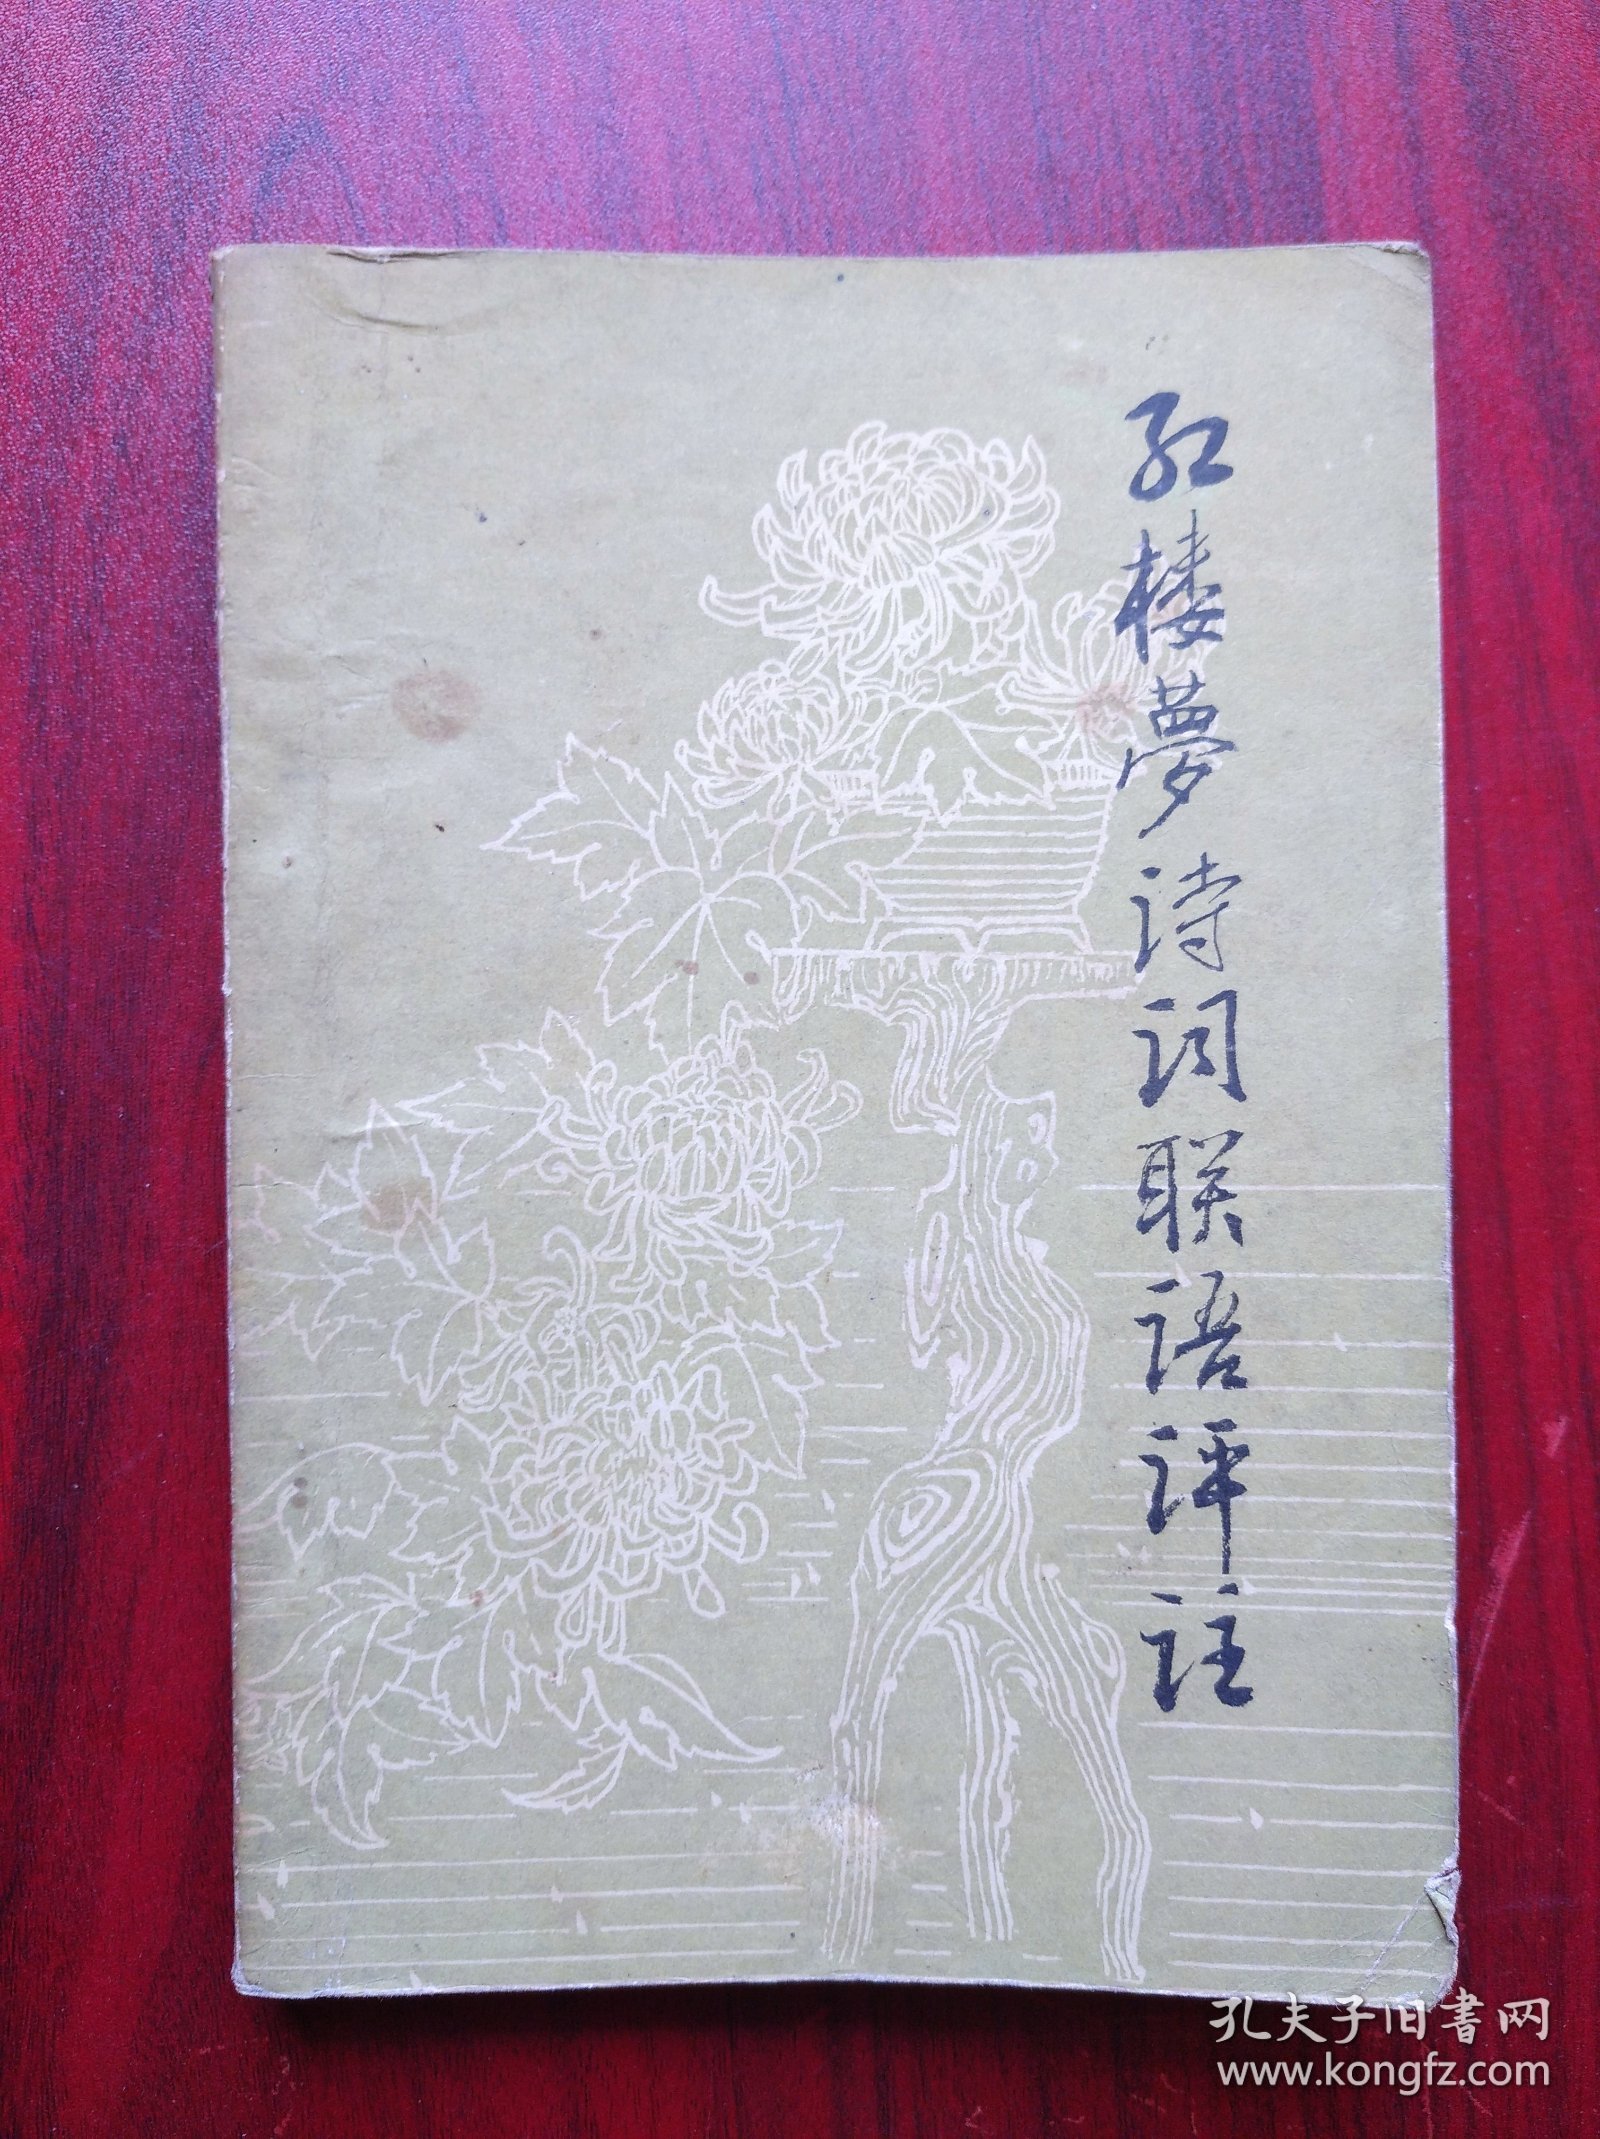 红楼夢诗词联语评注
孔夫子旧書网
www.kongfz.com